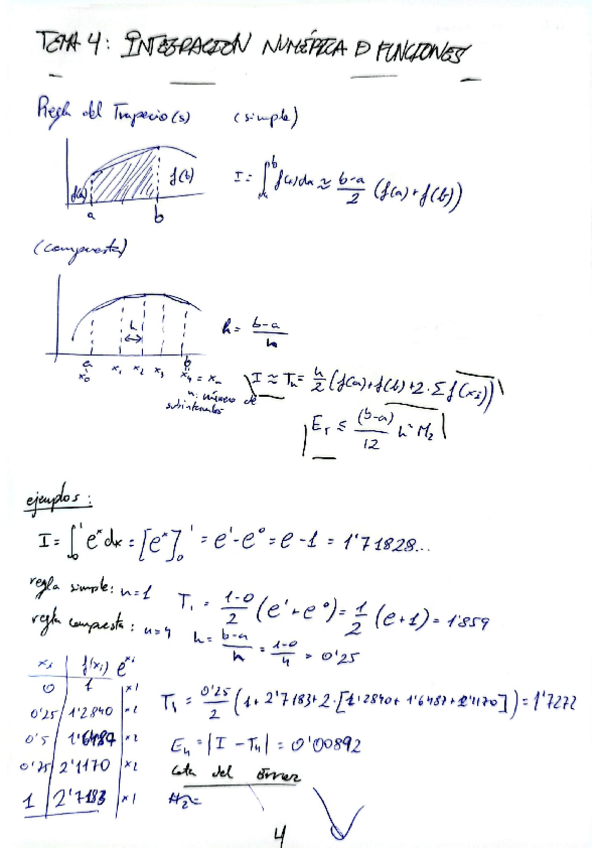 TEMA 4: INTEGRACION NUMÉRICA D FUNCIONES
Regla del Trapecio(s) (simple)
f(a) f(b)
a b
I = ∫_a^b f(x)dx ≈ b-a/2 (f(a)+f(b))
(compuesta)
h
a x₀ x₁ x₂ x₃ b x₄ = xₙ
n: número de
subintervalos
h = b-a/n
I ≈ Tn = h/2 (f(a)+f(b)+2·Σf(xi))
E_T ≤ (b-a)/12 h² M₂
ejemplos:
I = ∫_0^1 e^x dx = [e^x]_0^1 = e^1 - e^0 = e-1 = 1'71828...
regla simple: n=1 T₁ = 1-0/2 (e^1+e^0) = 1/2 (e+1) = 1'859
regla compuesta: n=4 h = b-a/n = 1-0/4 = 0'25
xi f(xi) e^xi
0 1 x1
0'25 1'2840 x2
0'5 1'6487 x2
0'75 2'1170 x2
1 2'7183 x1
T₄ = 0'25/2 (1+2'7183+2·[1'2840+1'6487+2'1170]) = 1'7272
E₄ = |I - T₄| = 0'00892
Cota del error
M₂ =
4